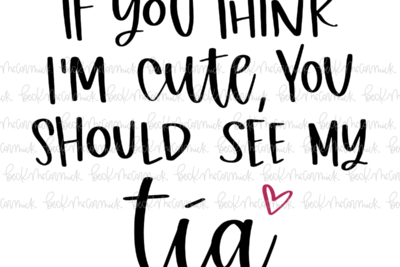 IF YOU THINK
I'M cute, YOU
SHOULD SEE MY
tía